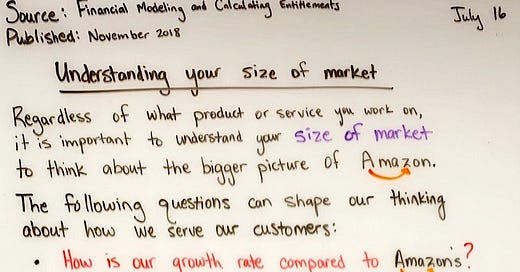 Source: Financial Modeling and Calculating Entitlements
July 16
Published: November 2018
Understanding your size of market
Regardless of what product or service you work on,
it is important to understand your size of market
to think about the bigger picture of Amazon.
The following questions can shape our thinking
about how we serve our customers:
• How is our growth rate compared to Amazon's?